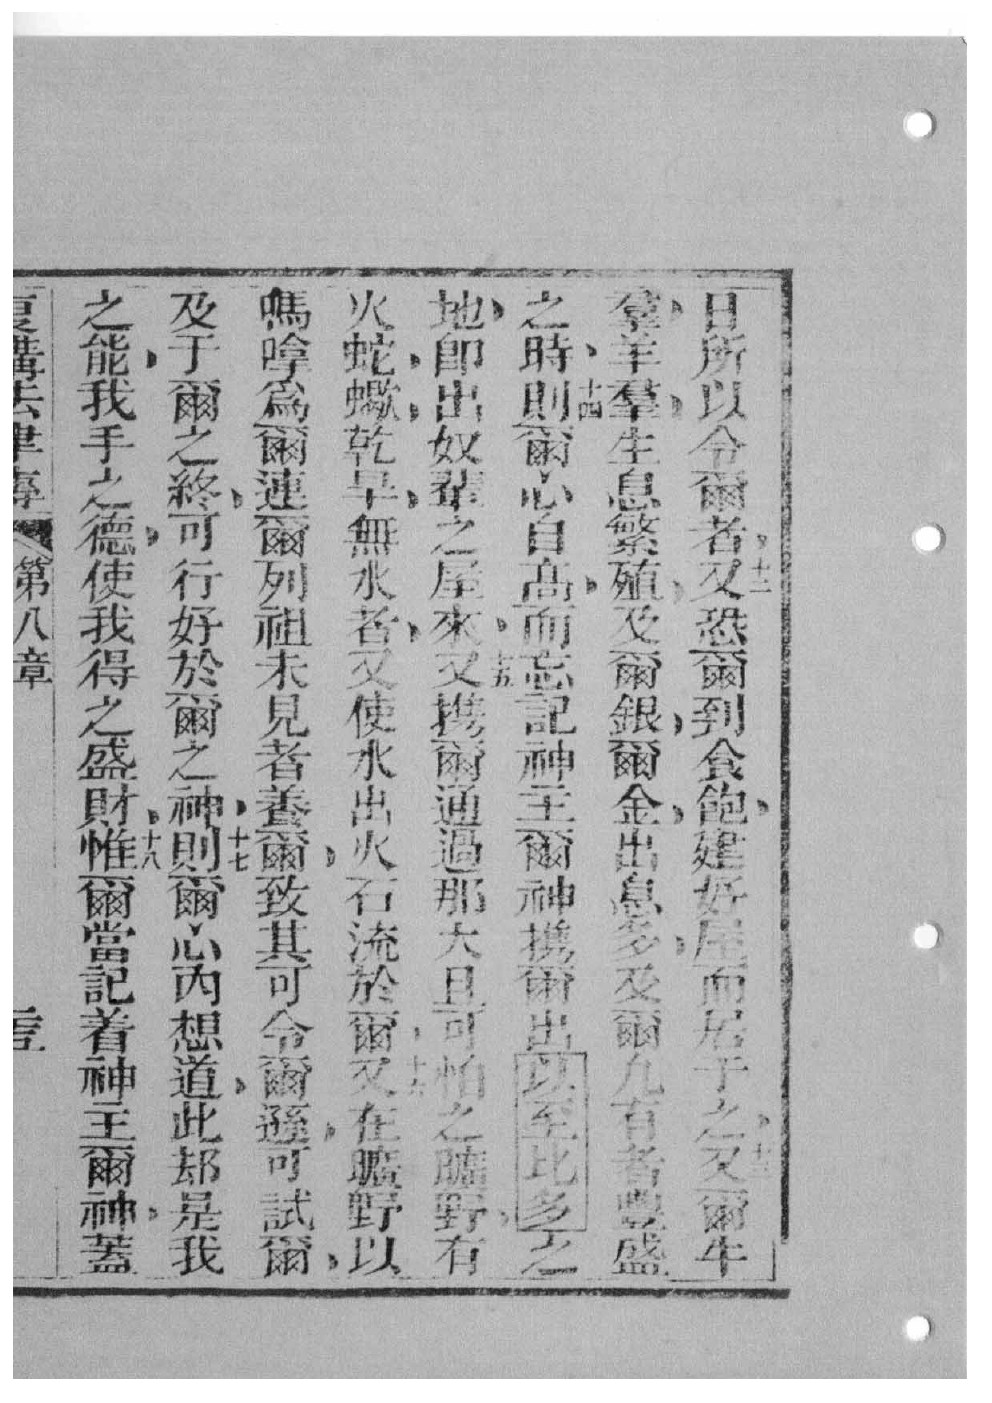 日所以令爾者、十二又恐爾到食飽、建好屋而居于之、十三又爾牛
羣、羊羣、生息繁殖、及爾銀、爾金、出息多、及爾凡有者豐盛
之時、十四則爾心自高、而忘記神主爾神攜爾出以至比多之
地、卽出奴輩之屋來、十五又攜爾通過那大且可怕之曠野、有
火蛇、蠍、乾旱、無水者、又使水出火石流於爾、十六又在曠野以
嗎嗱爲爾連爾列祖未見者養爾、致其可令爾遜、可試爾、
及于爾之終、可行好於爾之神、十七則爾心內想道、此却是我
之能、我手之德、使我得之盛財、十八惟爾當記着神主爾神、蓋
復講法律傳 第八章